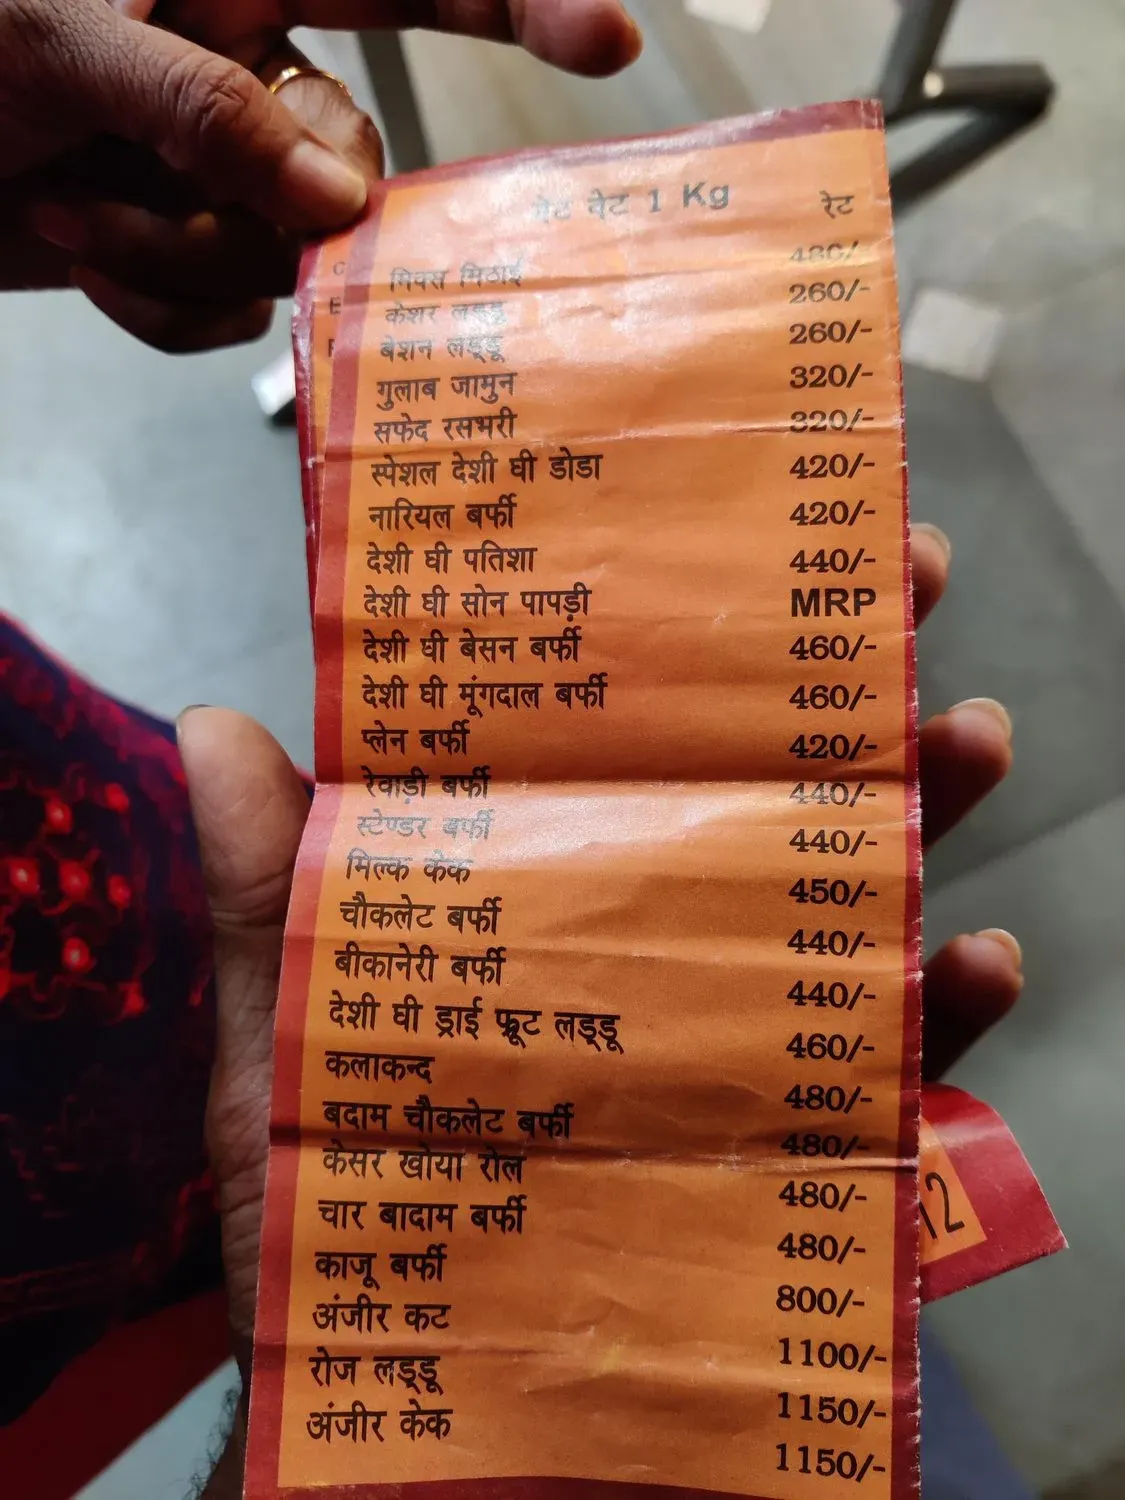 नेट वेट 1 Kg रेट
मिक्स मिठाई 480/-
केशर लड्डू 260/-
बेशन लड्डू 260/-
गुलाब जामुन 320/-
सफेद रसभरी 320/-
स्पेशल देशी घी डोडा 420/-
नारियल बर्फी 420/-
देशी घी पतिशा 440/-
देशी घी सोन पापड़ी MRP
देशी घी बेसन बर्फी 460/-
देशी घी मूंगदाल बर्फी 460/-
प्लेन बर्फी 420/-
रेवाड़ी बर्फी 440/-
स्टेण्डर बर्फी 440/-
मिल्क केक 450/-
चौकलेट बर्फी 440/-
बीकानेरी बर्फी 440/-
देशी घी ड्राई फ्रूट लड्डू 460/-
कलाकन्द 480/-
बदाम चौकलेट बर्फी 480/-
केसर खोया रोल 480/-
चार बादाम बर्फी 480/-
काजू बर्फी 800/-
अंजीर कट 1100/-
रोज लड्डू 1150/-
अंजीर केक 1150/-
12